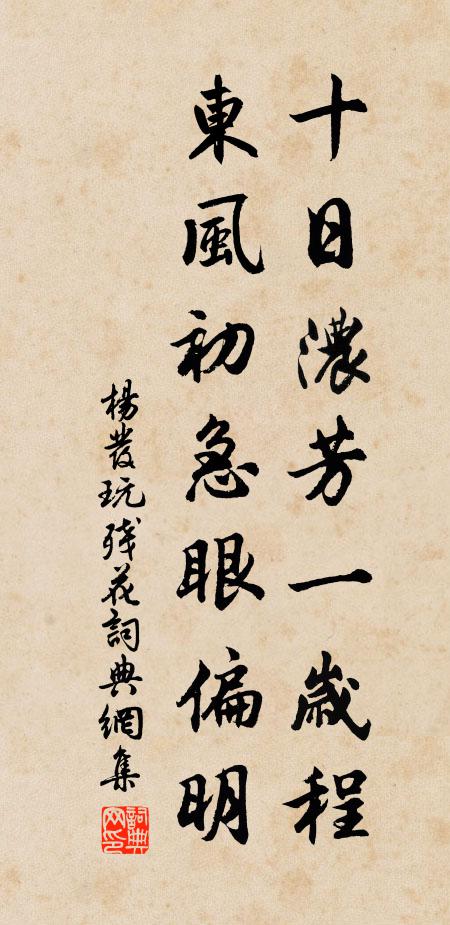 十日濃芳一歲程
東風初急眼偏明
楊發玩殘花詞典網集
詞典網印